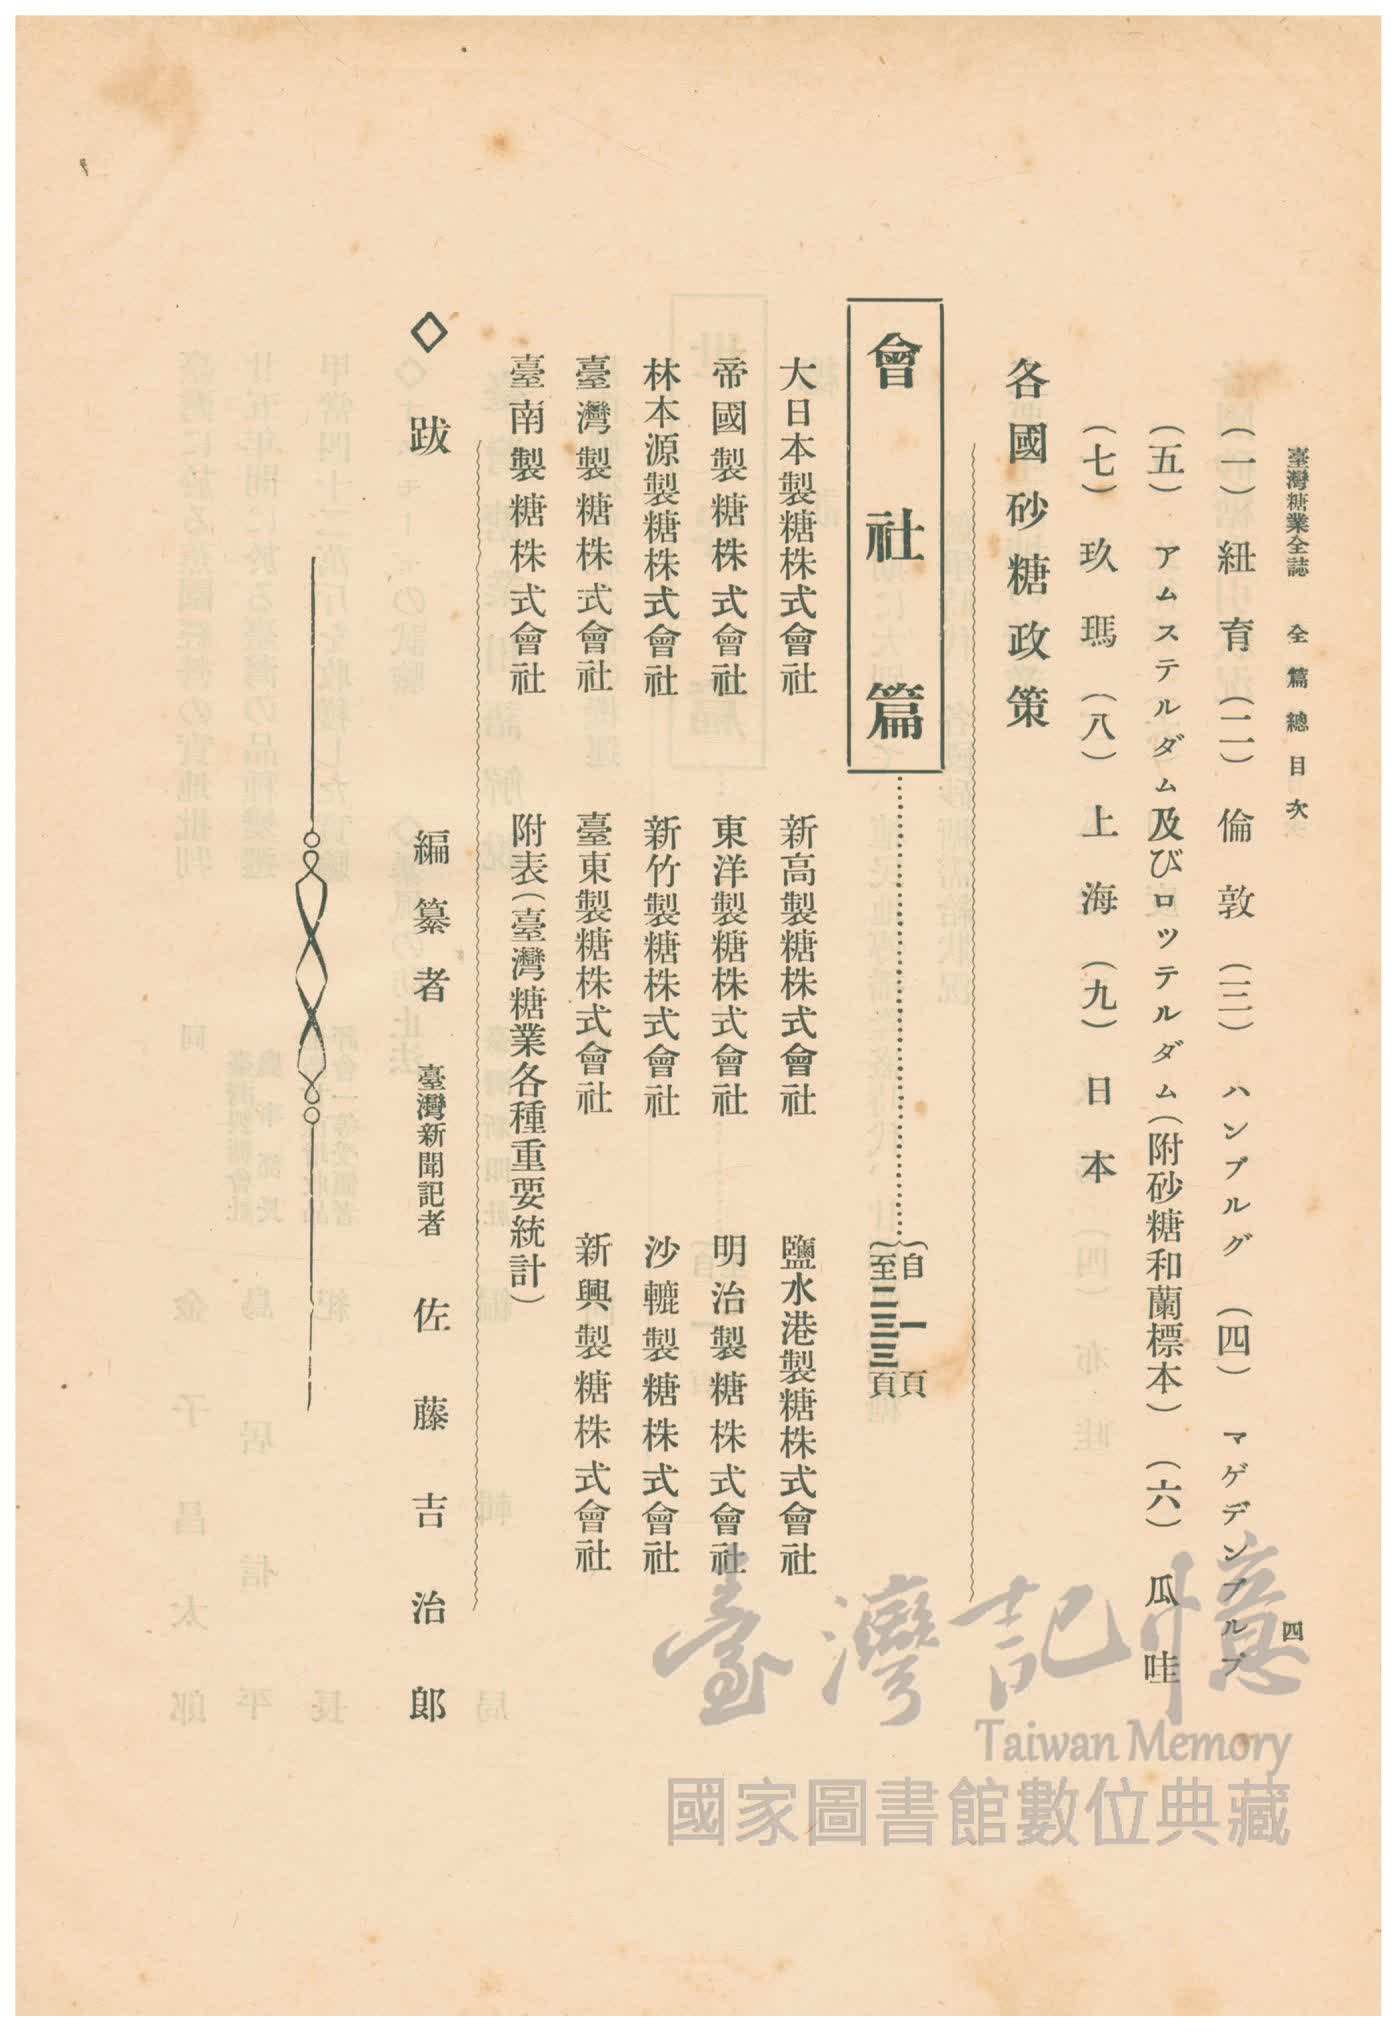 臺灣糖業全誌 全篇總目次 四
(一)紐育 (二)倫敦 (三)ハンブルグ (四)マゲデンブルブ
(五)アムステルダム及びロッテルダム(附砂糖和蘭標本) (六)瓜哇
(七)玖瑪 (八)上海 (九)日本
各國砂糖政策
會社篇 {自一頁 至二三三頁
大日本製糖株式會社 新高製糖株式會社 鹽水港製糖株式會社
帝國製糖株式會社 東洋製糖株式會社 明治製糖株式會社
林本源製糖株式會社 新竹製糖株式會社 沙轆製糖株式會社
臺灣製糖株式會社 臺東製糖株式會社 新興製糖株式會社
臺南製糖株式會社 附表(臺灣糖業各種重要統計)
◇跋 編纂者 臺灣新聞記者 佐藤吉治郎
臺灣記憶
Taiwan Memory
國家圖書館數位典藏